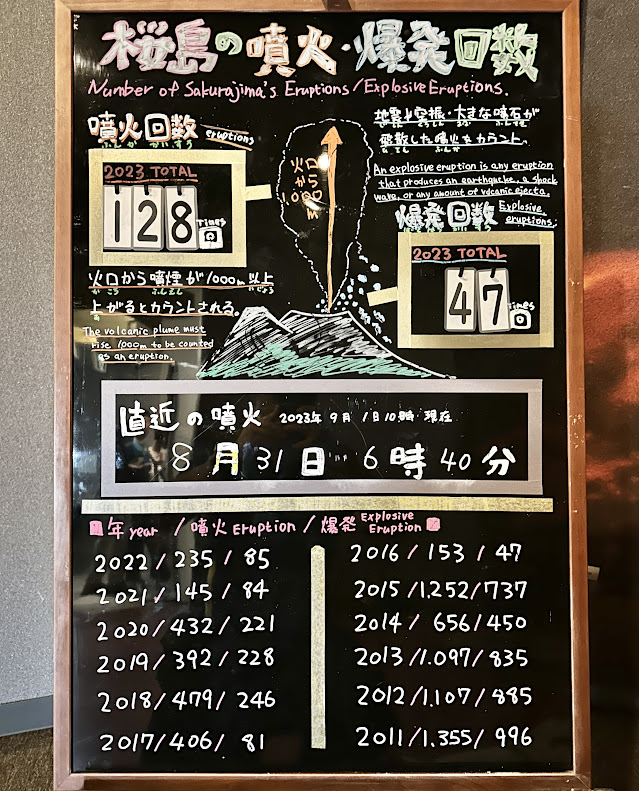 桜島の噴火・爆発回数
Number of Sakurajima's Eruptions/Explosive Eruptions.
噴火回数 eruptions
ふんか かいすう
2023 TOTAL
128 times 回
火口から噴煙が1000m以上
かこう ふんえん いじょう
上がるとカウントされる。
あ
The volcanic plume must
rise 1000m to be counted
as an eruption.
火口から
1000m
地震と空振・大きな噴石が
飛散した噴火をカウント。
An explosive eruption is any eruption
that produces an earthquake, a shock
wave, or any amount of volcanic ejecta.
爆発回数 Explosive
eruptions.
2023 TOTAL
47 times 回
直近の噴火 2023年9月1日10時現在
8月31日 6時40分
年 year / 噴火 Eruption / 爆発 Explosive Eruption
2022/235/85
2021/145/84
2020/432/221
2019/392/228
2018/479/246
2017/406/81
2016/153/47
2015/1.252/737
2014/656/450
2013/1.097/835
2012/1.107/885
2011/1.355/996